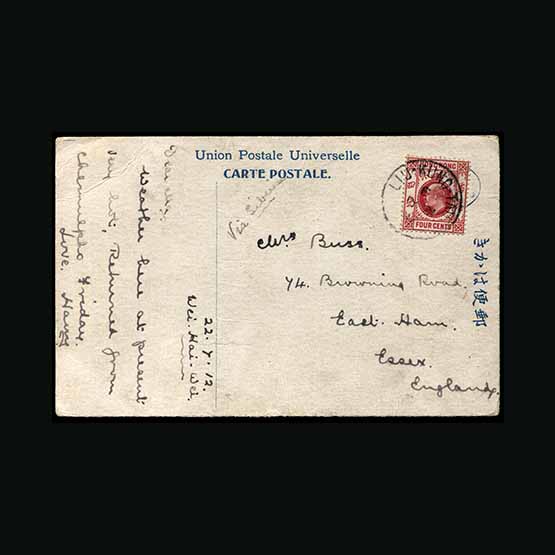 Union Postale Universelle
CARTE POSTALE.
Via Siberia
Mrs Buss.
74. Browning Road,
East. Ham.
Essex.
England.
22. 7. 12.
Wei. Hai. Wei.
Weather here at present
very hot, Returned from
Chemulpho Friday.
Love. Harry
LIU-KUNG-TAU
HONG KONG
FOUR CENTS
きかは便郵